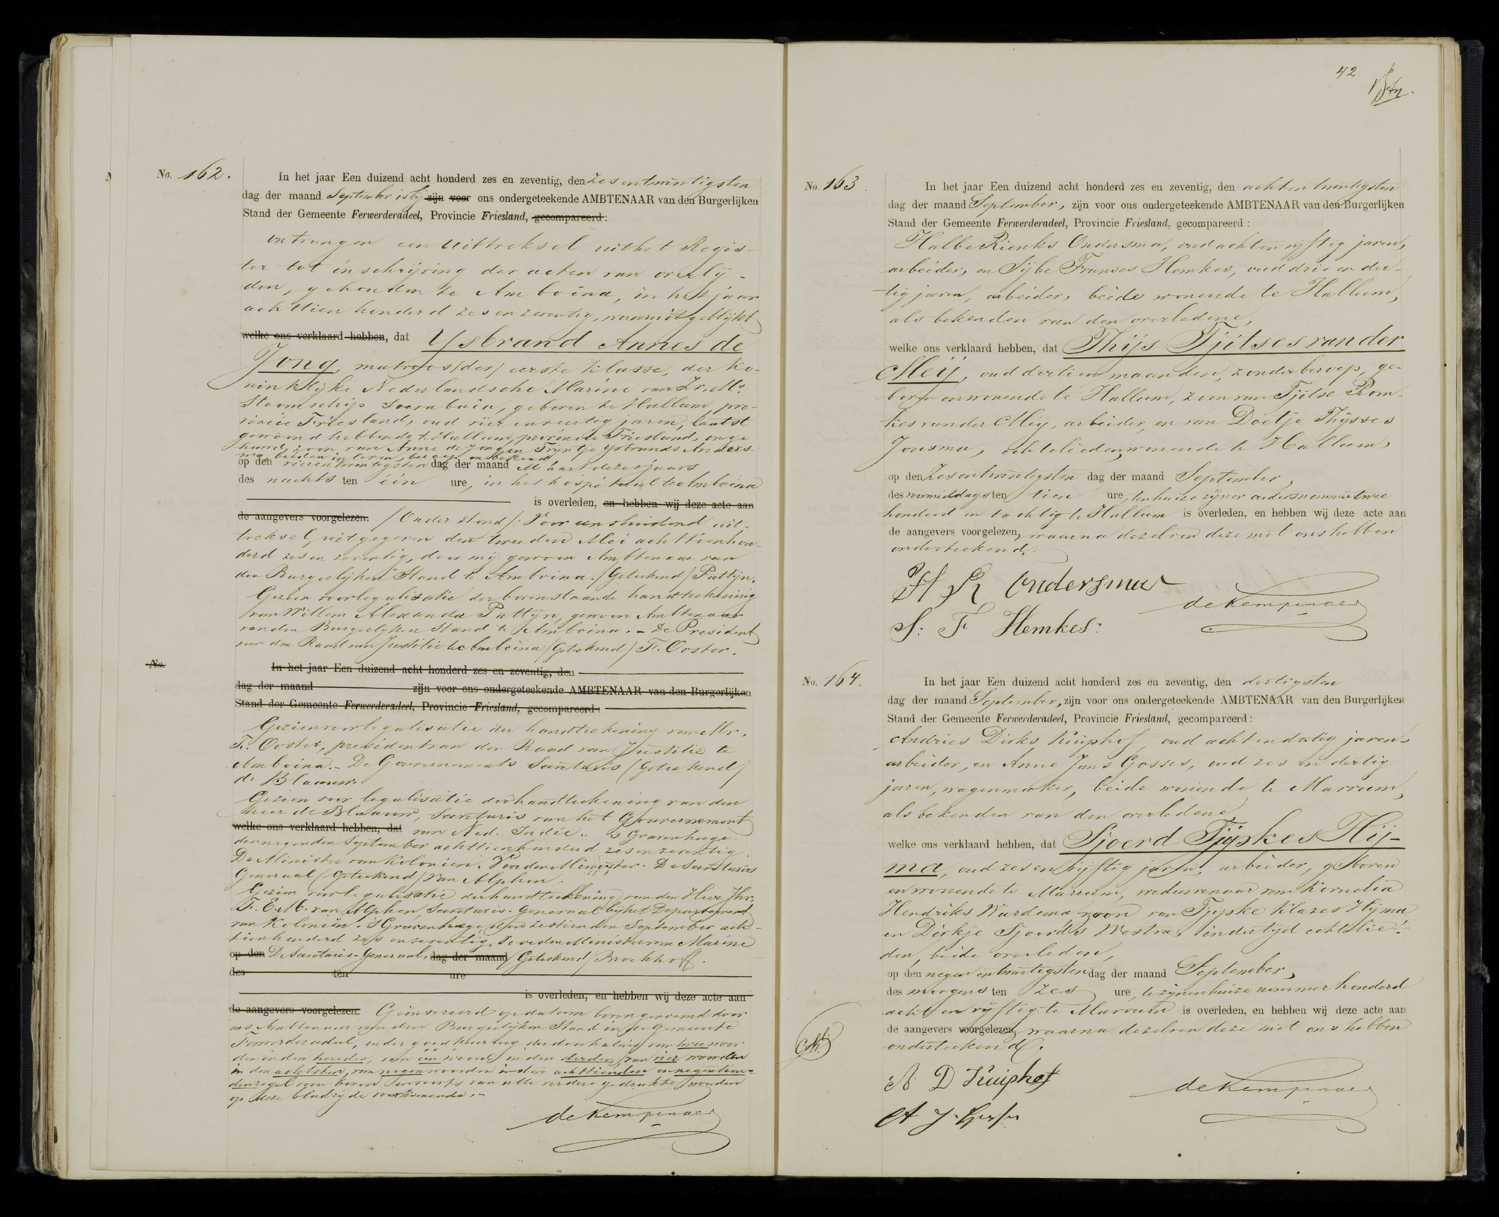 No. 162.
In het jaar Een duizend acht honderd zes en zeventig, den zesentwintigsten
dag der maand September is bij zijn voor ons ondergeteekende AMBTENAAR van den Burgerlijken
Stand der Gemeente Ferwerderadeel, Provincie Friesland, gecompareerd:
ontvangen een uittreksel uit het Regis-
ter tot inschrijving der acten van overlij-
den, gehouden te Amboina, in het jaar
achttien honderd zes en zeventig, waaruit blijkt
welke ons verklaard hebben, dat Ysbrand Annes de
Jong, matroos /der/ eerste klasse, der Ko-
ninklijke Nederlandsche Marine van Zr. Ms.
Stoomschip Soerabaia, geboren te Hallum, pro-
vincie Friesland, oud jaren, laatst
gewoond hebbende te Hallum, provincie Friesland, onge
huwd, zoon van Anne de Jong en Trijntje Ysbrands Anders
op den vierentwintigsten dag der maand Maart dezes jaars
des nachts ten één ure, in het hospitaal te Amboina
is overleden, en hebben wij deze acte aan
de aangevers voorgelezen. /Onder stond/: Voor eensluidend uit-
treksel, uitgegeven den tweeden Mei achttienhon-
derd zes en zeventig, door mij gewoon Ambtenaar van
den Burgerlijken Stand te Amboina. /Geteekend/ Pattijn.
Gezien voor legalisatie der bovenstaande handteekening
van Willem Alexander Pattijn, gewoon Ambtenaar
van den Burgerlijken Stand te Amboina. - De President
van den Raad van Justitie te Amboina /Geteekend/ F. Ooster.
No.
In het jaar Een duizend acht honderd zes en zeventig, den
dag der maand zijn voor ons ondergeteekende AMBTENAAR van den Burgerlijken
Stand der Gemeente Ferwerderadeel, Provincie Friesland, gecompareerd:
Gezien voor legalisatie der handteekening van Mr.
F. Ooster, president van den Raad van Justitie te
Amboina. - De Gouvernements Secretaris /Geteekend/
de Blaauw.
Gezien voor legalisatie der handteekening van den
heer de Blaauw, Secretaris van het Gouvernement
welke ons verklaard hebben, dat van Ned. Indië. - 's Gravenhage
den negenden September achttienhonderd zes en zeventig.
De Minister van Koloniën. Voor den Minister. De Secretaris
Generaal /Geteekend/ van Alphen.
Gezien voor legalisatie der handteekening van den Heer Jhr.
F. E. M. van Alphen Secretaris-Generaal bij het Departement
van Koloniën. 's Gravenhage, den September acht-
tienhonderd zes en zeventig. De Minister van Marine
op den De Secretaris-Generaal, dag der maand /Geteekend/ Brockhoff.
des ten ure
is overleden, en hebben wij deze acte aan
de aangevers voorgelezen. Geïnsereerd op datum bovengenoemd door
ons Ambtenaar van den Burgerlijken Stand in de Gemeente
Ferwerderadeel, onder goedkeuring der doorhaling van twee woor
den in den tweeden, van één woord in den derden, van vier woorden
in den achtsten, van negen woorden in den achttienden en negentien-
den regel van boven
op deze bladzijde voorkomende. -
deKempenaer
42
No. 163.
In het jaar Een duizend acht honderd zes en zeventig, den achtentwintigsten
dag der maand September, zijn voor ons ondergeteekende AMBTENAAR van den Burgerlijken
Stand der Gemeente Ferwerderadeel, Provincie Friesland, gecompareerd:
Halbe Rienks Ondersma, oud achtenvijftig jaren,
arbeider, en Sijbe Franses Hemkes, oud drie en der-
tig jaren, arbeider, beide wonende te Hallum,
als bekenden van den overledene,
welke ons verklaard hebben, dat Thijs Tjitses van der
Meij, oud dertien maanden, zonder beroep, ge-
boren en wonende te Hallum, zoon van Tjitse Rom-
kes van der Meij, arbeider, en van Doetje Thijsses
Jousma, echtelieden, wonende te Hallum,
op den Zesentwintigsten dag der maand September,
des voormiddags ten tien ure, ten huize zijner ouders nummer twee
honderd en tachtig te Hallum is overleden, en hebben wij deze acte aan
de aangevers voorgelezen, waarna dezelven deze met ons hebben
onderteekend.
H R Ondersma
S: F Hemkes:
deKempenaer
No. 164.
In het jaar Een duizend acht honderd zes en zeventig, den dertigsten
dag der maand September, zijn voor ons ondergeteekende AMBTENAAR van den Burgerlijken
Stand der Gemeente Ferwerderadeel, Provincie Friesland, gecompareerd:
Andries Dirks Kuiphof, oud achtendertig jaren
arbeider, en Anne Jans Gosses, oud zes en dertig
jaren, wagenmaker, beide wonende te Marrum,
als bekenden van den overledene
welke ons verklaard hebben, dat Sjoerd Tjipkes Hij-
ma, oud zes en vijftig jaren, arbeider, geboren
en wonende te Marrum, weduwnaar van Kornelia
Hendriks Wardema, zoon van Tjipke Klazes Hijma
en Dirkje Sjoerds Westra, in der tijd echtelie-
den, beide overleden,
op den negenentwintigsten dag der maand September,
des morgens ten zes ure, te zijnen huize nummer honderd
acht en vijftig te Marrum is overleden, en hebben wij deze acte aan
de aangevers voorgelezen, waarna dezelven deze met ons hebben
onderteekend.
A D Kuiphof
A J Gosses
deKempenaer